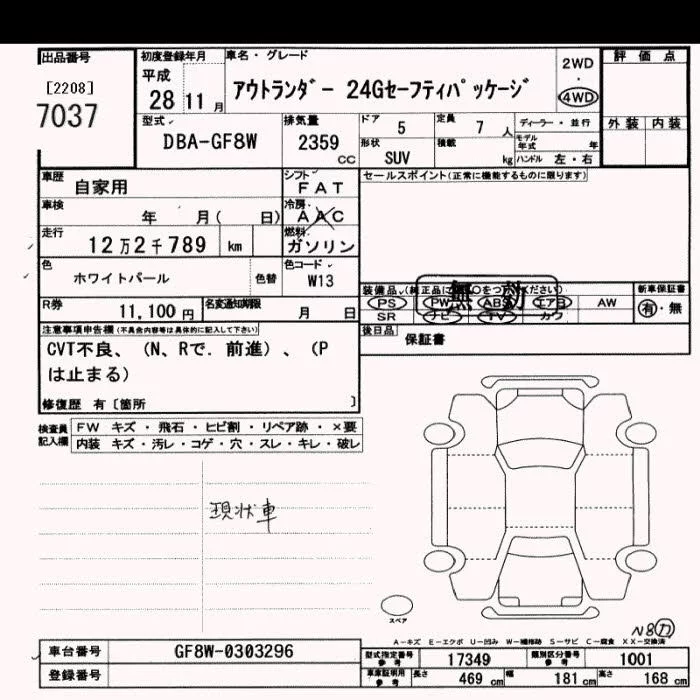 出品番号
[2208]
7037
初度登録年月
平成
28 11 月
車名・グレード
アウトランダー 24Gセーフティパッケージ
2WD
・
4WD
評価点
外装 内装
型式
DBA-GF8W
排気量
2359
CC
ドア 5
定員 7 人
形状 SUV
積載 kg
ディーラー・並行
モデル年式 年
ハンドル 左・右
車歴 自家用
シフト
FAT
セールスポイント(正常に機能するものに限ります)
車検 年 月( 日)
冷房
AAC
走行 12万2千789 km
燃料
ガソリン
色 ホワイトパール
色替
色コード
W13
装備品
無効
新車保証書
PS PW ABS エアB AW
有・無
SR ナビ TV カワ
R券 11,100 円
名変通知期限 月 日
後日品 保証書
注意事項申告欄(不具合内容等は具体的に記入して下さい)
CVT不良、(N、Rで.前進)、(P
は止まる)
修復歴 有〔箇所 〕
検査員
記入欄
FW キズ・飛石・ヒビ割・リペア跡・×要
内装 キズ・汚レ・コゲ・穴・スレ・キレ・破レ
現状車
スペア
A-キズ E-エクボ U-凹み W-補修跡 S-サビ C-腐食 XX-交換済
車台番号 GF8W-0303296
登録番号
型式指定番号
参考
17349
類別区分番号
参考
1001
車庫証明用
参考
長さ 469 cm
幅 181 cm
高さ 168 cm